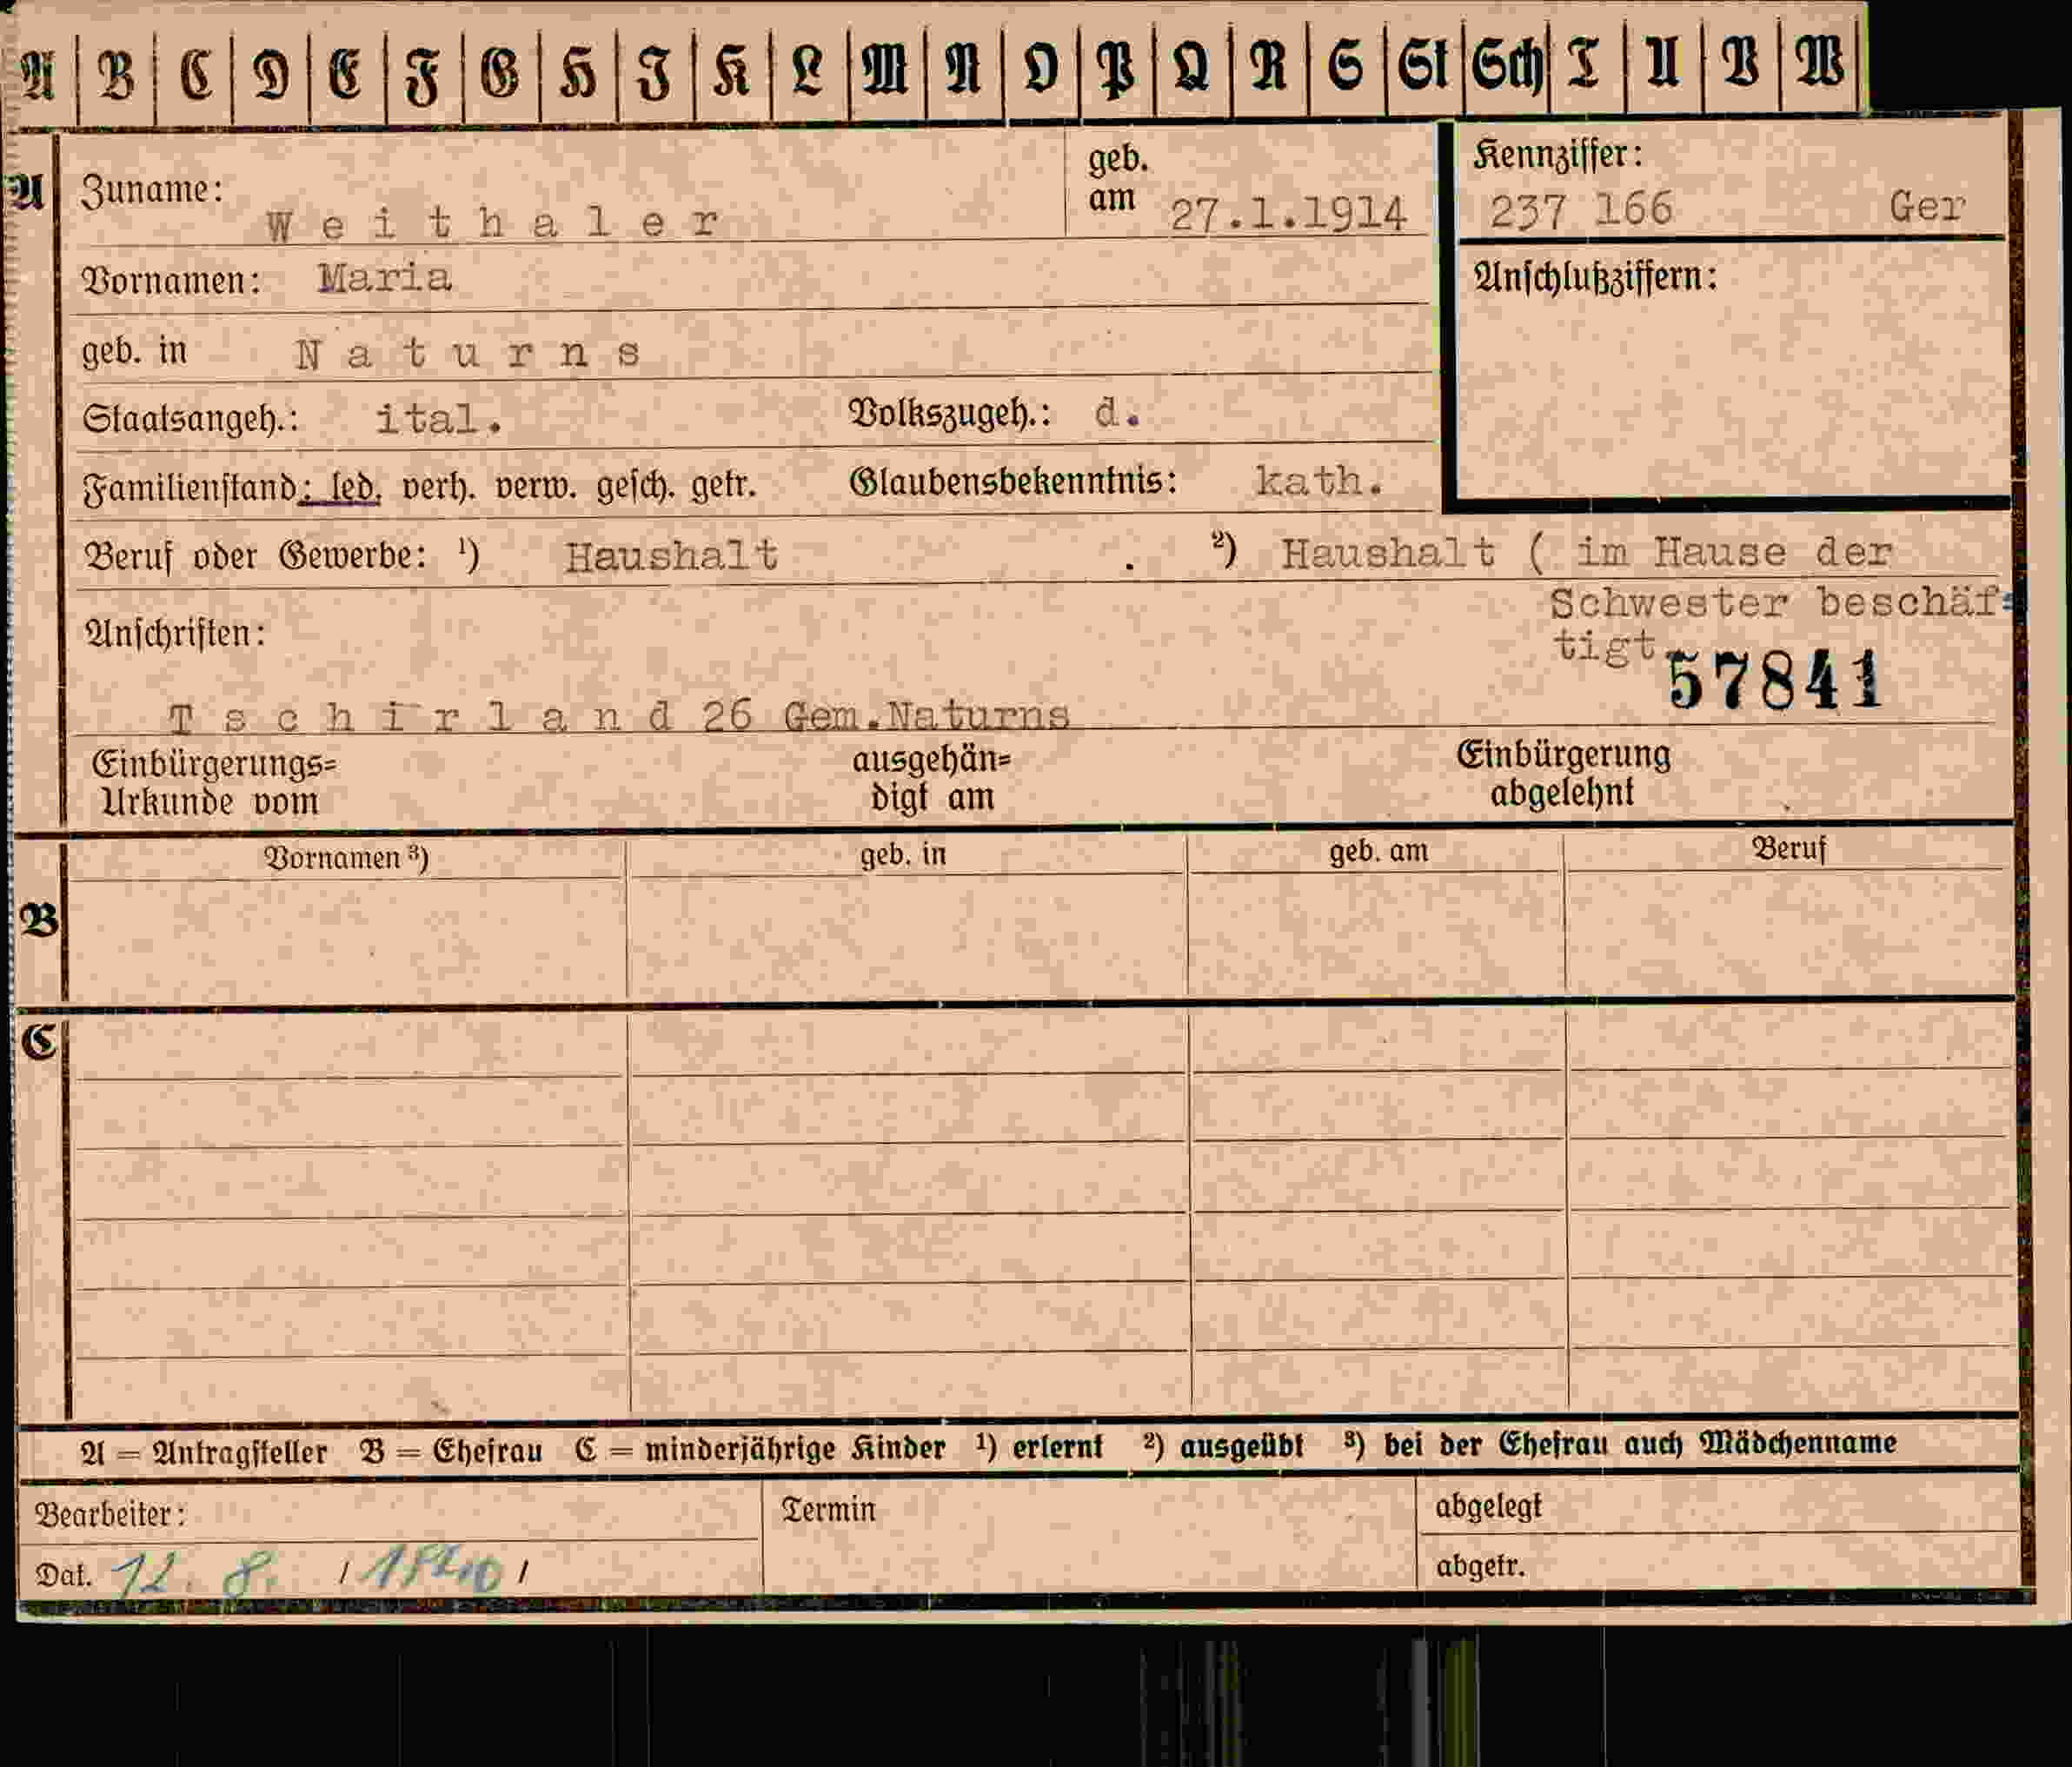 A B C D E F G H J K L M N O P Q R S St Sch T U V W
A Zuname: Weithaler geb. am 27.1.1914 Kennziffer: 237 166 Ger
Vornamen: Maria Anschlußziffern:
geb. in Naturns
Staatsangeh.: ital. Volkszugeh.: d.
Familienstand: led. verh. verw. gesch. getr. Glaubensbekenntnis: kath.
Beruf oder Gewerbe: ¹) Haushalt . ²) Haushalt ( im Hause der
Schwester beschäf=
Anschriften: tigt
57841
Tschirland 26 Gem.Naturns
Einbürgerungs= ausgehän= Einbürgerung
Urkunde vom digt am abgelehnt
Vornamen ³) geb. in geb. am Beruf
B
C
A = Antragsteller B = Ehefrau C = minderjährige Kinder ¹) erlernt ²) ausgeübt ³) bei der Ehefrau auch Mädchenname
Bearbeiter: Termin abgelegt
Dat. 12. 8. /1940/ abgetr.